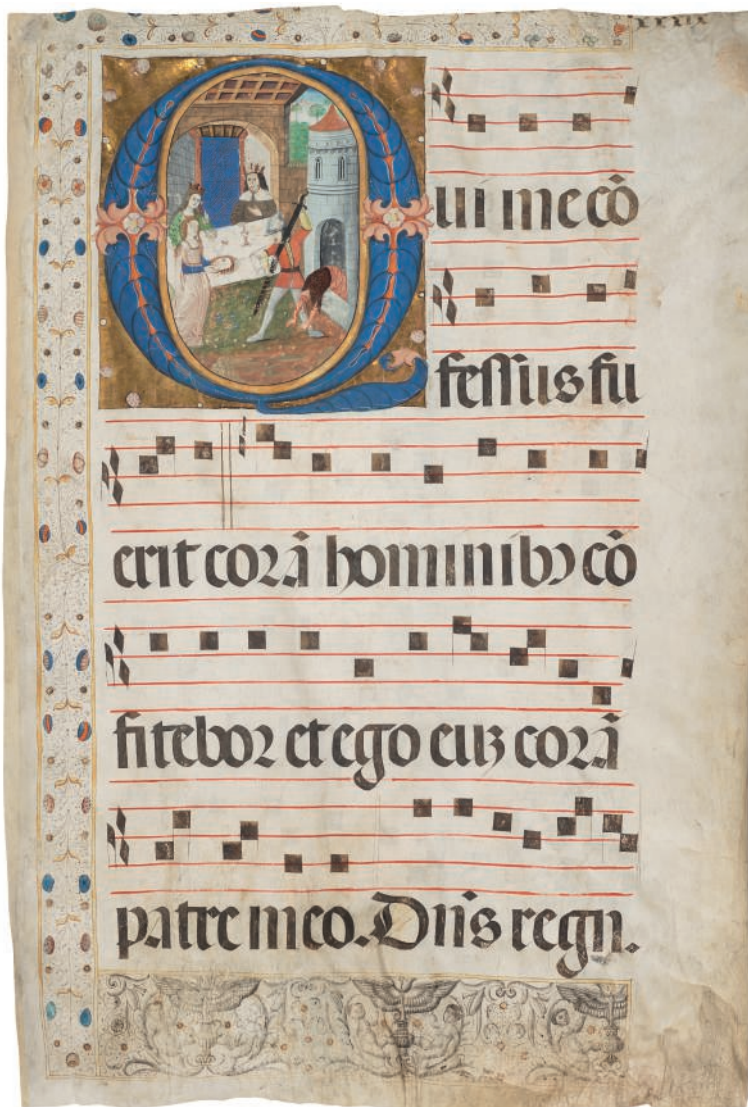 Qui me cõ
fessus fu
erit corã hominibꝯ cõ
fitebor et ego euꝫ corã
patre meo. Dñs regn.